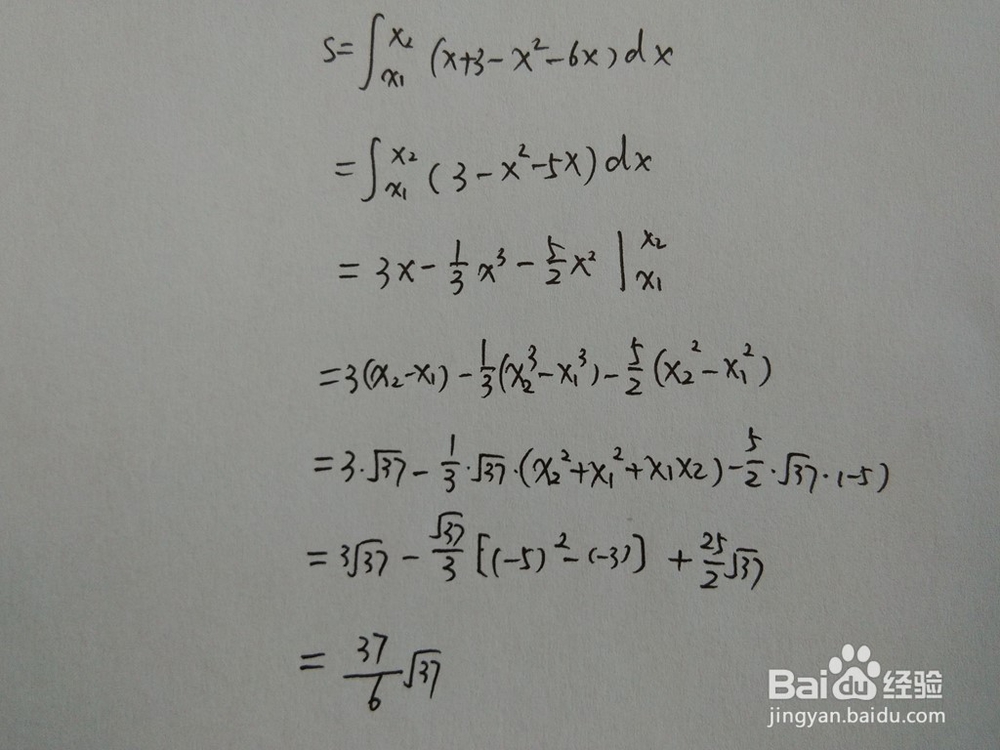 S=∫_{x₁}^{x₂} (x+3-x²-6x)dx
=∫_{x₁}^{x₂} (3-x²-5x)dx
=3x-\frac{1}{3}x³-\frac{5}{2}x² |_{x₁}^{x₂}
=3(x₂-x₁)-\frac{1}{3}(x₂³-x₁³)-\frac{5}{2}(x₂²-x₁²)
=3·√37-\frac{1}{3}·√37·(x₂²+x₁²+x₁x₂)-\frac{5}{2}·√37·(-5)
=3√37-\frac{√37}{3}[(-5)²-(-3)]+\frac{25}{2}√37
=\frac{37}{6}√37
Baidu经验
jingyan.baidu.com